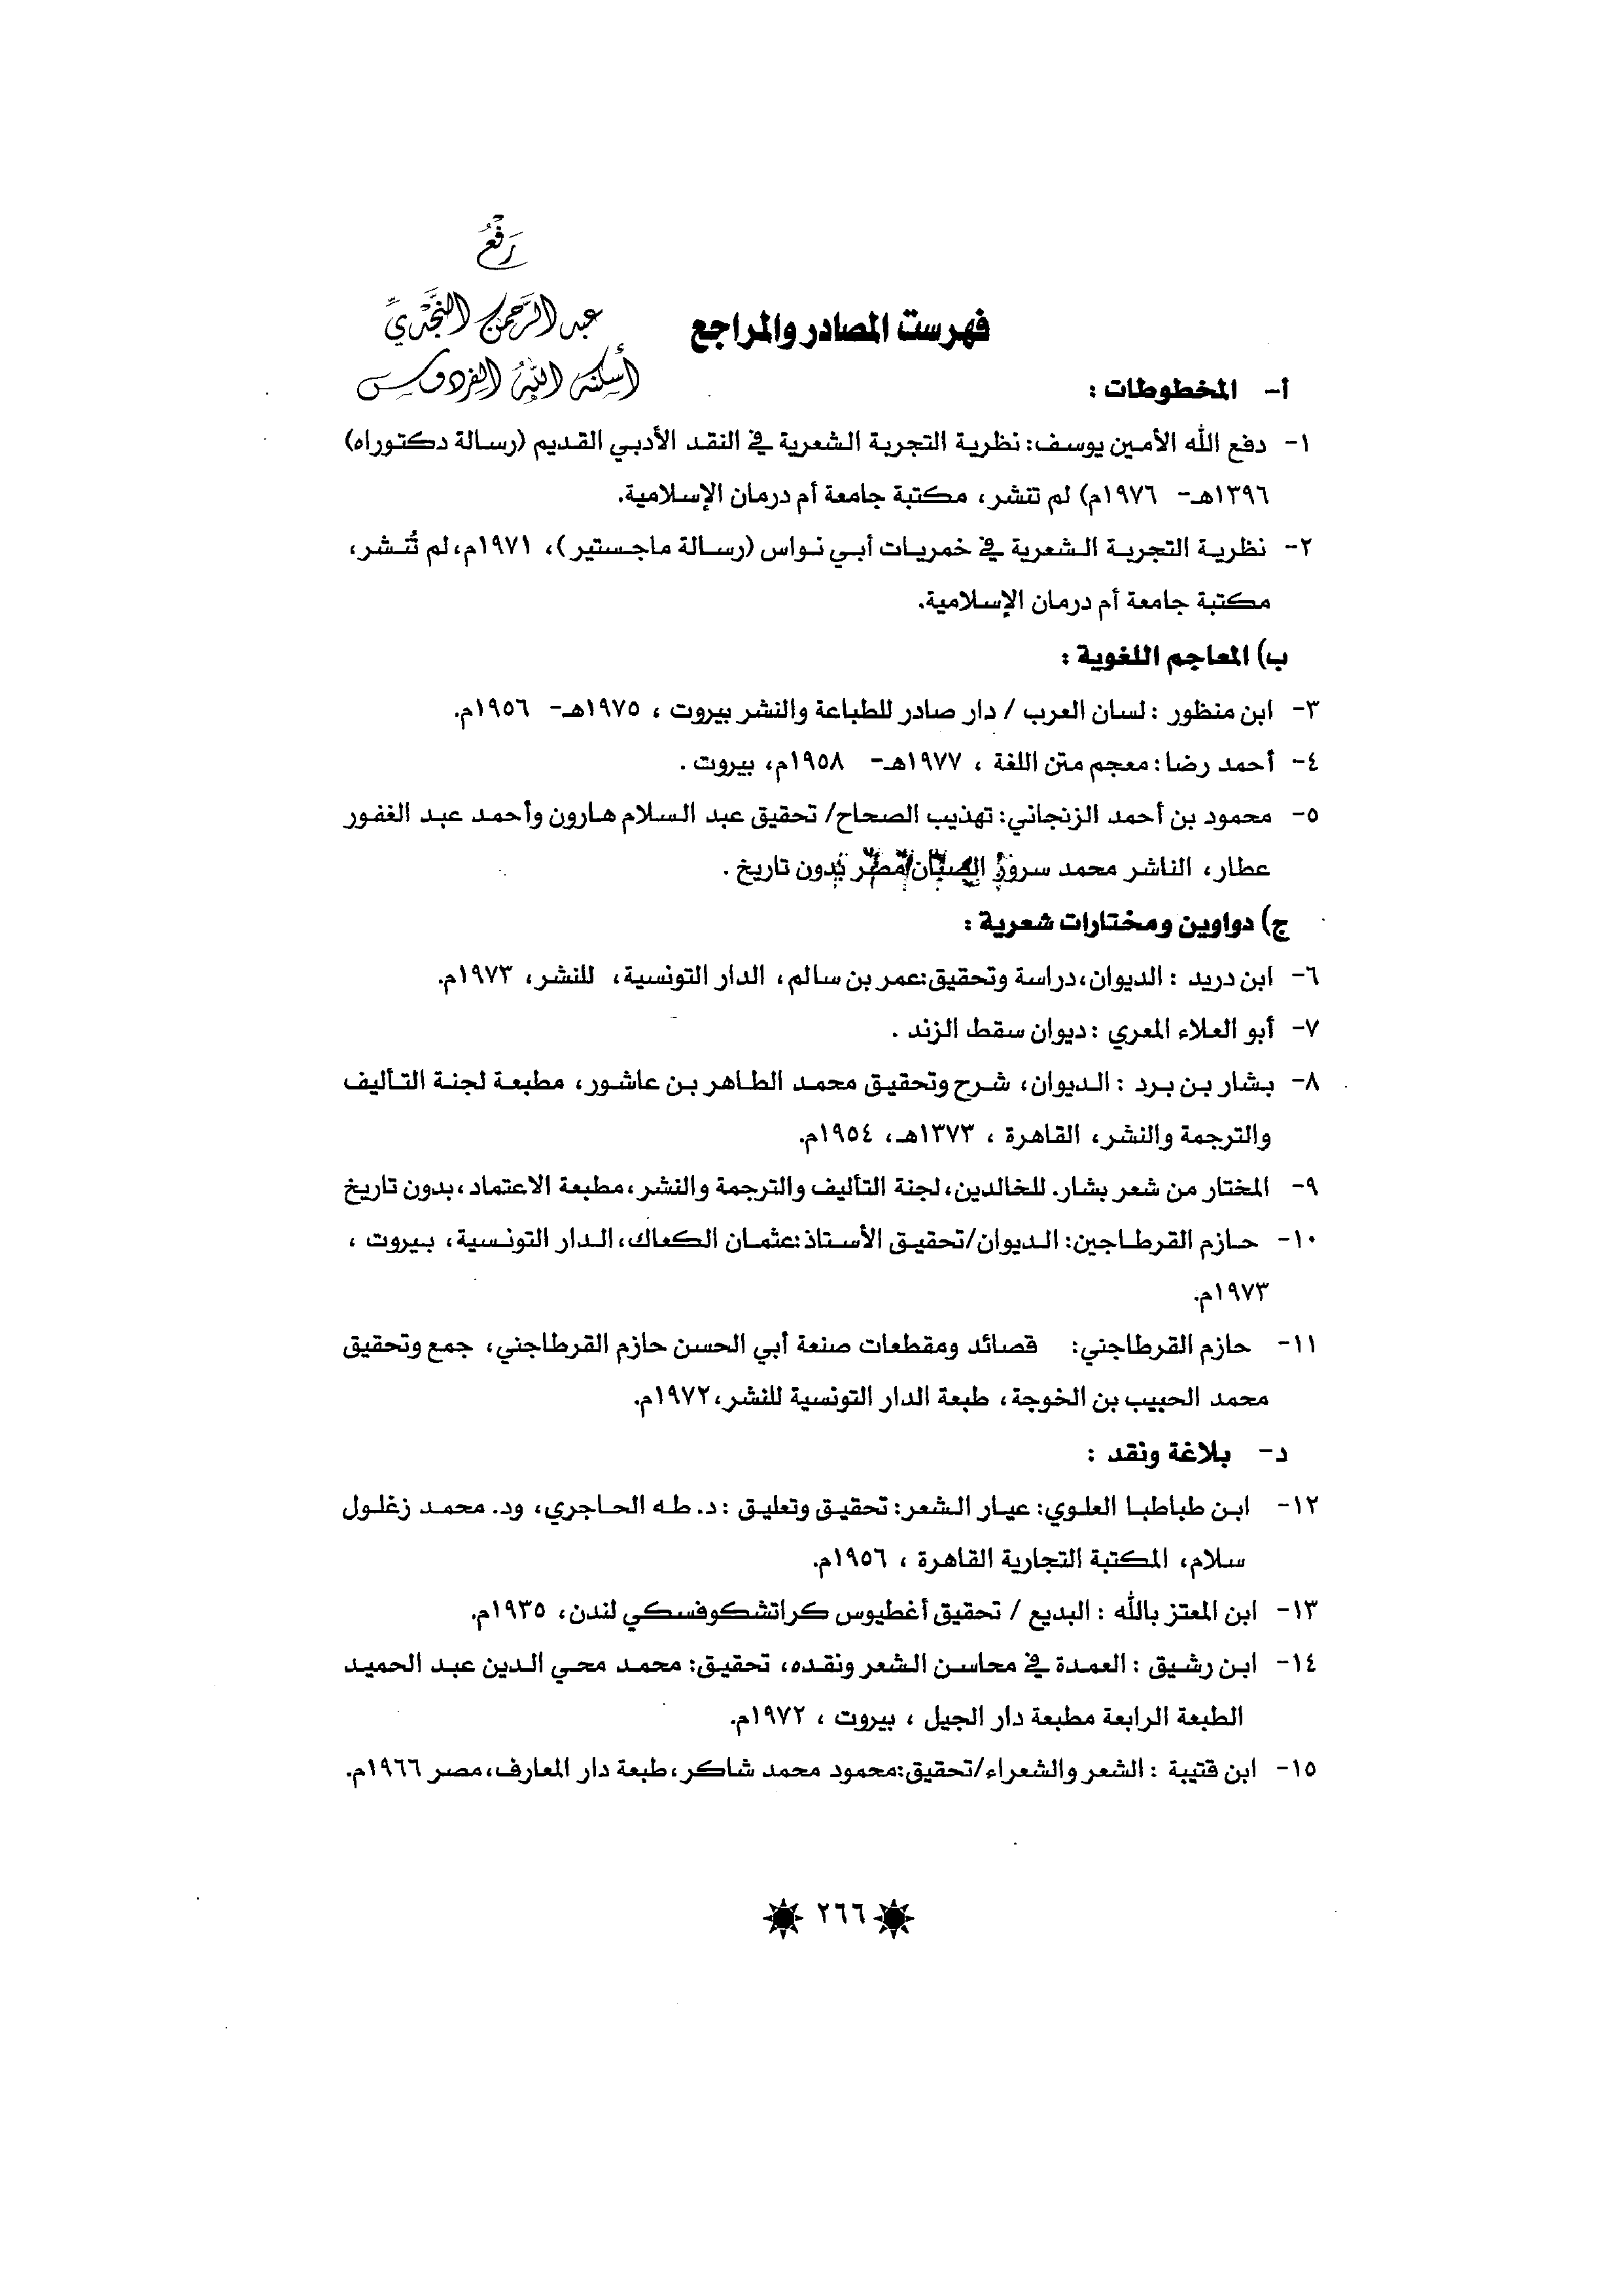 رَفْعُ
عبد الرَّحمن النَّجْديِّ
أسكنه اللهُ الفردوس
فهرست المصادر والمراجع
أ- المخطوطات :
١- دفع الله الأمين يوسف: نظرية التجربة الشعرية في النقد الأدبي القديم (رسالة دكتوراه)
١٣٩٦هـ- ١٩٧٦م) لم تنشر، مكتبة جامعة أم درمان الإسلامية.
٢- نظرية التجربة الشعرية في خمريات أبي نواس (رسالة ماجستير)، ١٩٧١م، لم تُنشر،
مكتبة جامعة أم درمان الإسلامية.
ب) المعاجم اللغوية :
٣- ابن منظور : لسان العرب / دار صادر للطباعة والنشر بيروت ، ١٩٧٥هـ- ١٩٥٦م.
٤- أحمد رضا : معجم متن اللغة ، ١٩٧٧هـ- ١٩٥٨م، بيروت .
٥- محمود بن أحمد الزنجاني: تهذيب الصحاح/ تحقيق عبد السلام هارون وأحمد عبد الغفور
عطار، الناشر محمد سرور الصبان/ بدون تاريخ .
ج) دواوين ومختارات شعرية :
٦- ابن دريد : الديوان، دراسة وتحقيق:عمر بن سالم، الدار التونسية، للنشر، ١٩٧٣م.
٧- أبو العلاء المعري : ديوان سقط الزند .
٨- بشار بن برد : الديوان، شرح وتحقيق محمد الطاهر بن عاشور، مطبعة لجنة التأليف
والترجمة والنشر، القاهرة ، ١٣٧٣هـ، ١٩٥٤م.
٩- المختار من شعر بشار. للخالدين، لجنة التأليف والترجمة والنشر، مطبعة الاعتماد ، بدون تاريخ
١٠- حازم القرطاجين: الديوان/تحقيق الأستاذ:عثمان الكعاك، الدار التونسية، بيروت ،
١٩٧٣م.
١١- حازم القرطاجني: قصائد ومقطعات صنعة أبي الحسن حازم القرطاجني، جمع وتحقيق
محمد الحبيب بن الخوجة، طبعة الدار التونسية للنشر، ١٩٧٢م.
د- بلاغة ونقد :
١٢- ابن طباطبا العلوي: عيار الشعر: تحقيق وتعليق : د. طه الحاجري، ود. محمد زغلول
سلام، المكتبة التجارية القاهرة ، ١٩٥٦م.
١٣- ابن المعتز بالله : البديع / تحقيق أغطيوس كراتشكوفسكي لندن، ١٩٣٥م.
١٤- ابن رشيق : العمدة في محاسن الشعر ونقده، تحقيق: محمد محي الدين عبد الحميد
الطبعة الرابعة مطبعة دار الجيل ، بيروت ، ١٩٧٢م.
١٥- ابن قتيبة : الشعر والشعراء/تحقيق:محمود محمد شاكر، طبعة دار المعارف، مصر ١٩٦٦م.
٢٦٦